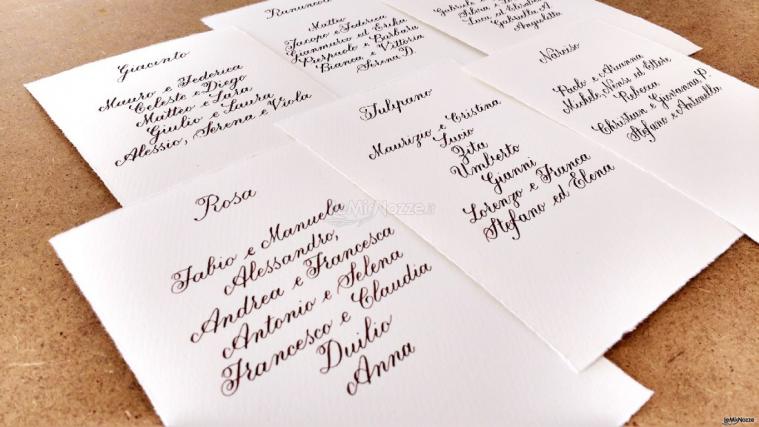 Giacinto
Mauro e Federica
Celeste e Diego
Matteo e Sara
Giulio e Laura
Alessio, Serena e Viola
Ranuncolo
Matteo
Jacopo e Federica
Gianmarco ed Erika
Pierpaolo e Barbara
Bianca e Vittoria
Serena D.
Luca ed
Gabriella A.
Angioletta
Narciso
Paolo e Arianna
Michele, Nensi ed Ettore
Rebecca
Christian e Giovanna P.
Stefano e Antonella
Tulipano
Maurizio e Cristina
Lucio
Zita
Umberto
Gianni
Lorenzo e Franca
Stefano ed Elena
Rosa
Fabio e Manuela
Alessandro,
Andrea e Francesca
Antonio e Selena
Francesco e Claudia
Duilio
Anna
LeMieNozze.it
LeMieNozze